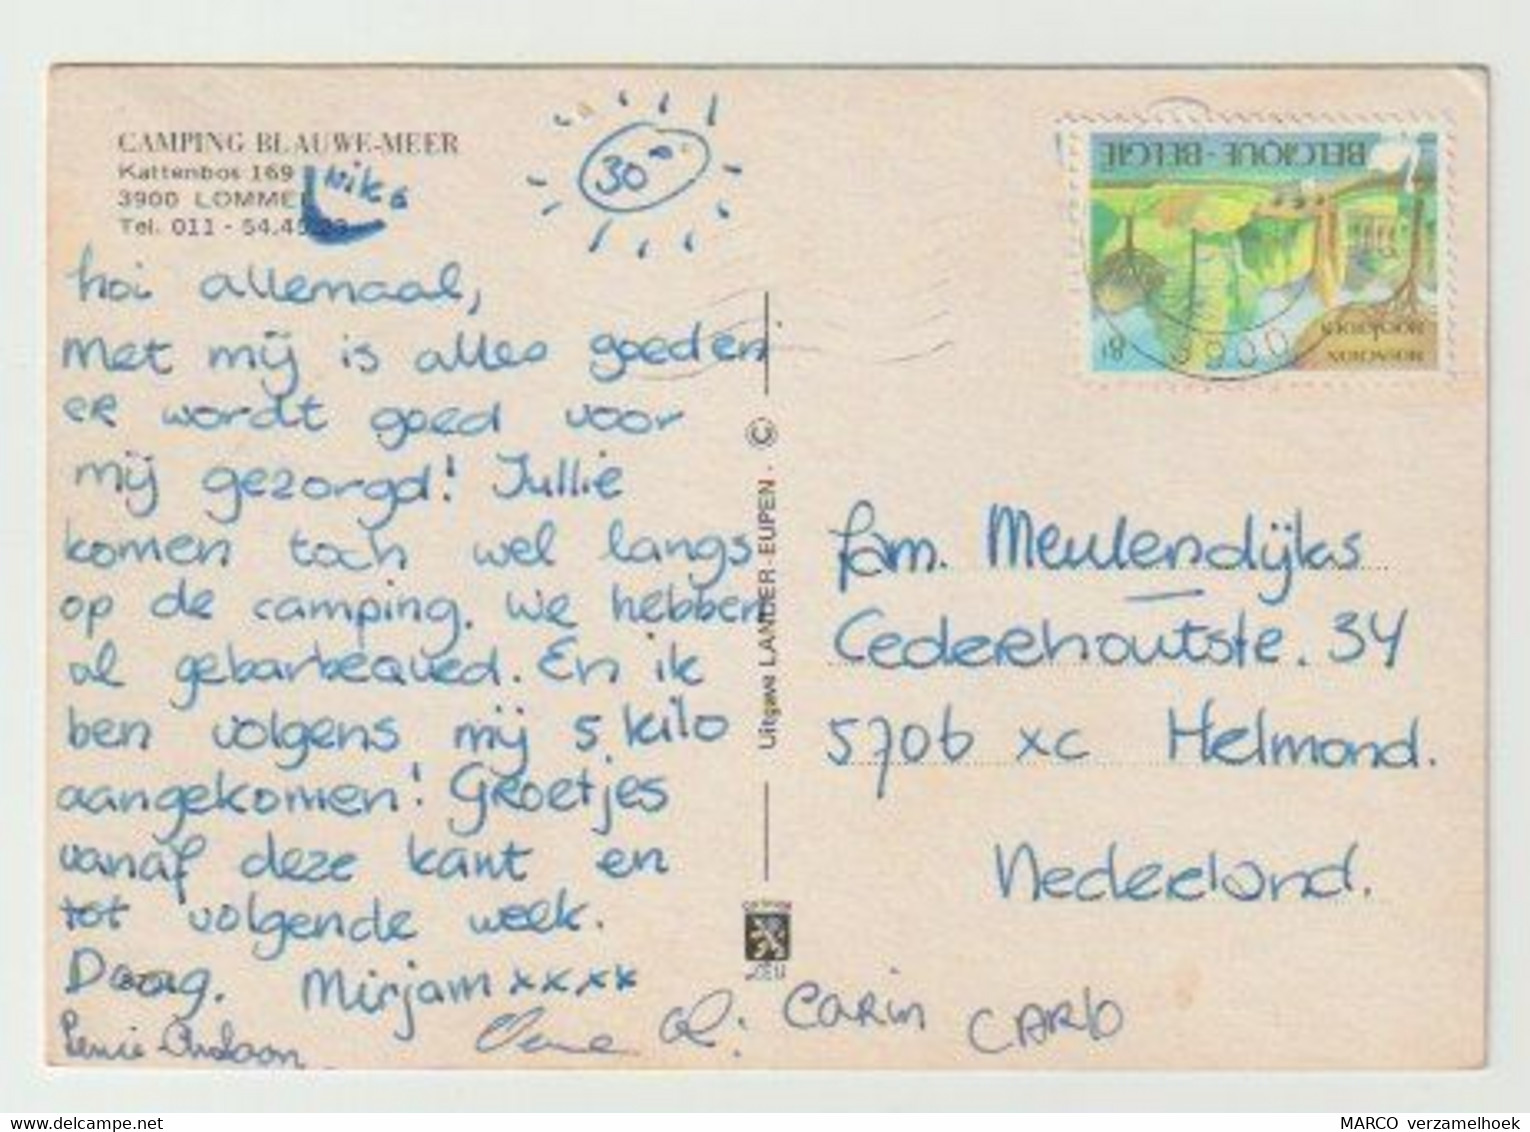 CAMPING BLAUWE-MEER
Kattenbos 169
3900 LOMMEL
Tel. 011 - 54.45.23
Nika
30°
hoi allemaal,
met mij is alles goed en
er wordt goed voor
mij gezorgd! Jullie
komen toch wel langs
op de camping. We hebben
al gebarbequed. En ik
ben volgens mij 5 kilo
aangekomen! Groetjes
vanaf deze kant en
tot volgende week.
Daag. Mirjam xxxx
Carin CARLO
Uitgave LANDER-EUPEN - ©
BELGIQUE-BELGIË
3900
fam. Meulendijks
Cederhoutstr. 34
5706 XC Helmond.
Nederland.
MARCO verzamelhoek